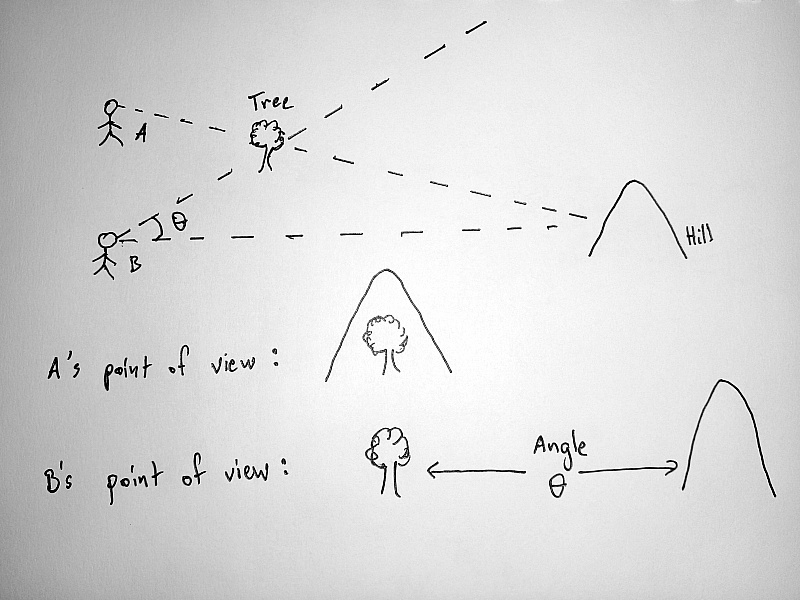 Tree
A
θ
B
Hill
A's point of view :
B's point of view :
Angle
θ